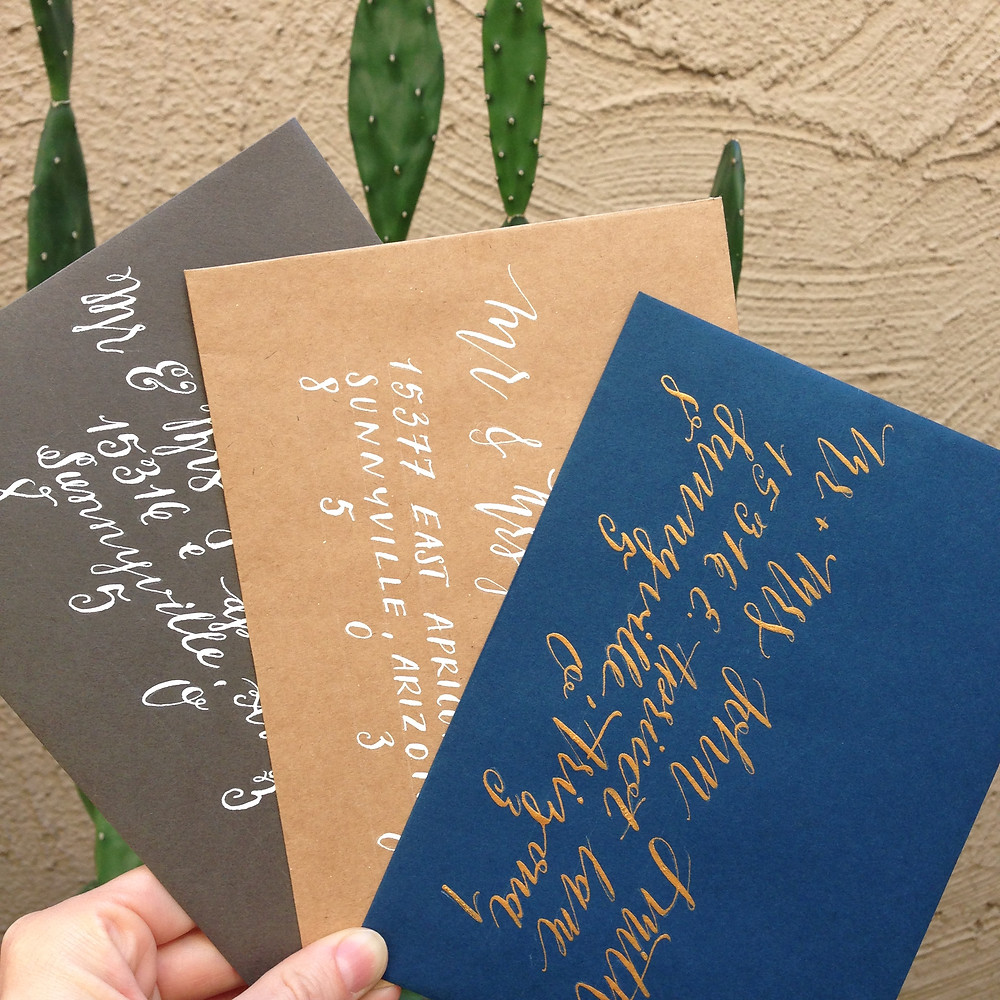 Mr & Mrs
15316 e
Sunnyville,
8 5 0 3
Mr & Mrs
15377 EAST
SUNNYVILLE,
8 5 0 3 0
Mr + Mrs John Smith
15316 E. Apricot lane
Sunnyville, Arizona
8 5 0 3 1